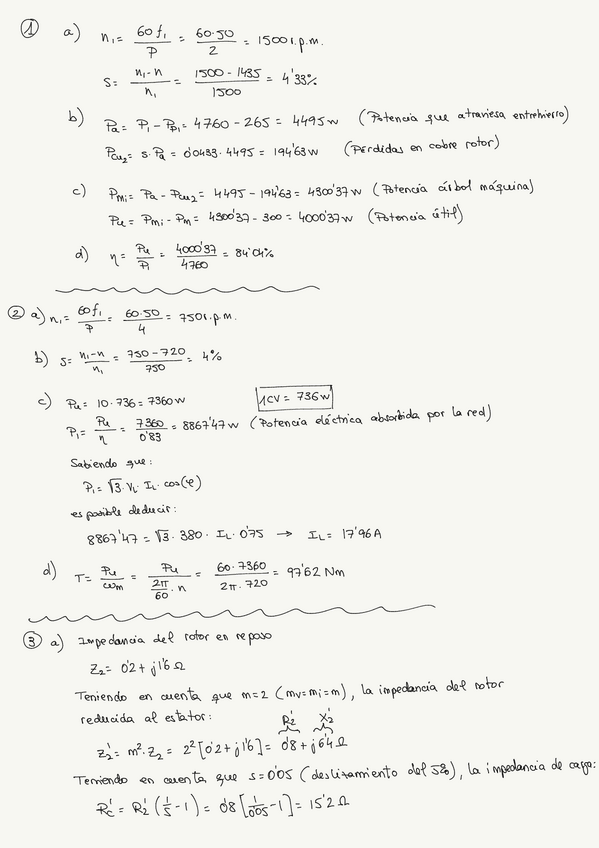 ① a) n₁ = 60 f₁ / P = 60·50 / 2 = 1500 r.p.m.
S = n₁-n / n₁ = 1500 - 1435 / 1500 = 4'33%
b) Pa = P₁ - Pp₁ = 4760 - 265 = 4495 w (Potencia que atraviesa entrehierro)
Pcu₂ = s·Pa = 0'0433·4495 = 194'63 w (Pérdidas en cobre rotor)
c) Pmi = Pa - Pcu₂ = 4495 - 194'63 = 4300'37 w (Potencia árbol máquina)
Pu = Pmi - Pm = 4300'37 - 300 = 4000'37 w (Potencia útil)
d) η = Pu / P₁ = 4000'37 / 4760 = 84'04%
② a) n₁ = 60 f₁ / P = 60·50 / 4 = 750 r.p.m.
b) S = n₁-n / n₁ = 750 - 720 / 750 = 4%
c) Pu = 10·736 = 7360 w 1CV = 736 w
P₁ = Pu / η = 7360 / 0'83 = 8867'47 w (Potencia eléctrica absorbida por la red)
Sabiendo que:
P₁ = √3·VL·IL·cos(φ)
es posible deducir:
8867'47 = √3·380·IL·0'75 → IL = 17'96 A
d) T = Pu / ωm = Pu / 2π/60·n = 60·7360 / 2π·720 = 97'62 Nm
③ a) Impedancia del rotor en reposo
Z₂ = 0'2 + j1'6 Ω
Teniendo en cuenta que m=2 (mv=mi=m), la impedancia del rotor
reducida al estator: R₂' X₂'
Z₂' = m²·Z₂ = 2² [0'2 + j1'6] = 0'8 + j6'4 Ω
Teniendo en cuenta que s=0'05 (deslizamiento del 5%), la impedancia de carga:
Rc' = R₂' (1/s - 1) = 0'8 [1/0'05 - 1] = 15'2 Ω